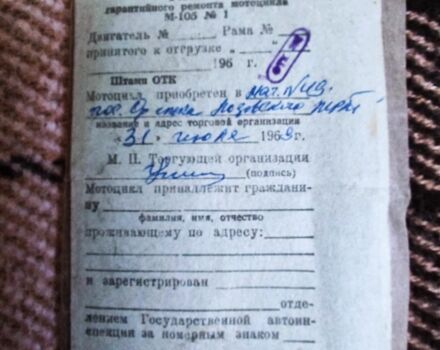 гарантийного ремонта мотоцикла
М-105 № 1
Двигатель № Рама №
принятого к отгрузке „ “
196 г.
Штамп ОТК
Мотоцикл приобретен в маг. №
пос.
название и адрес торговой организации
„31“ июля 1969г.
М. П. Торгующей организации
(подпись)
Мотоцикл принадлежит граждани-
ну
фамилия, имя, отчество
проживающему по адресу:
и зарегистрирован
отде-
лением Государственной автоин-
спекции за номерным знаком